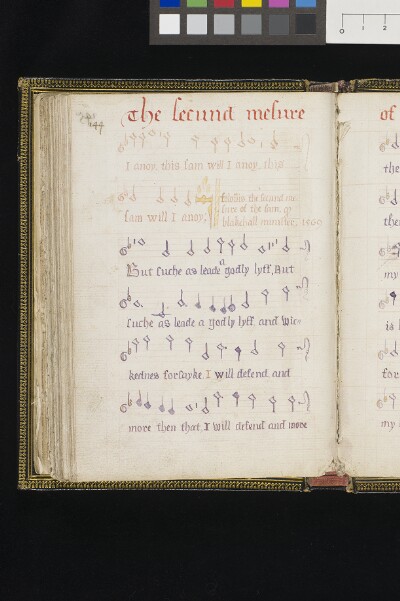 The secund mesure
I anoy, this sam will I anoy, this
followis the secund me-
sam will I anoy.
sure of the sam, qᵒ
blakehall minister, 1566
But suche as leade a godly lyff, But
suche as leade a godly lyff and wic-
kednes forsayke, I will defend and
more then that, I will defend and more
of
the
the
my
is
for
my
0 1 2